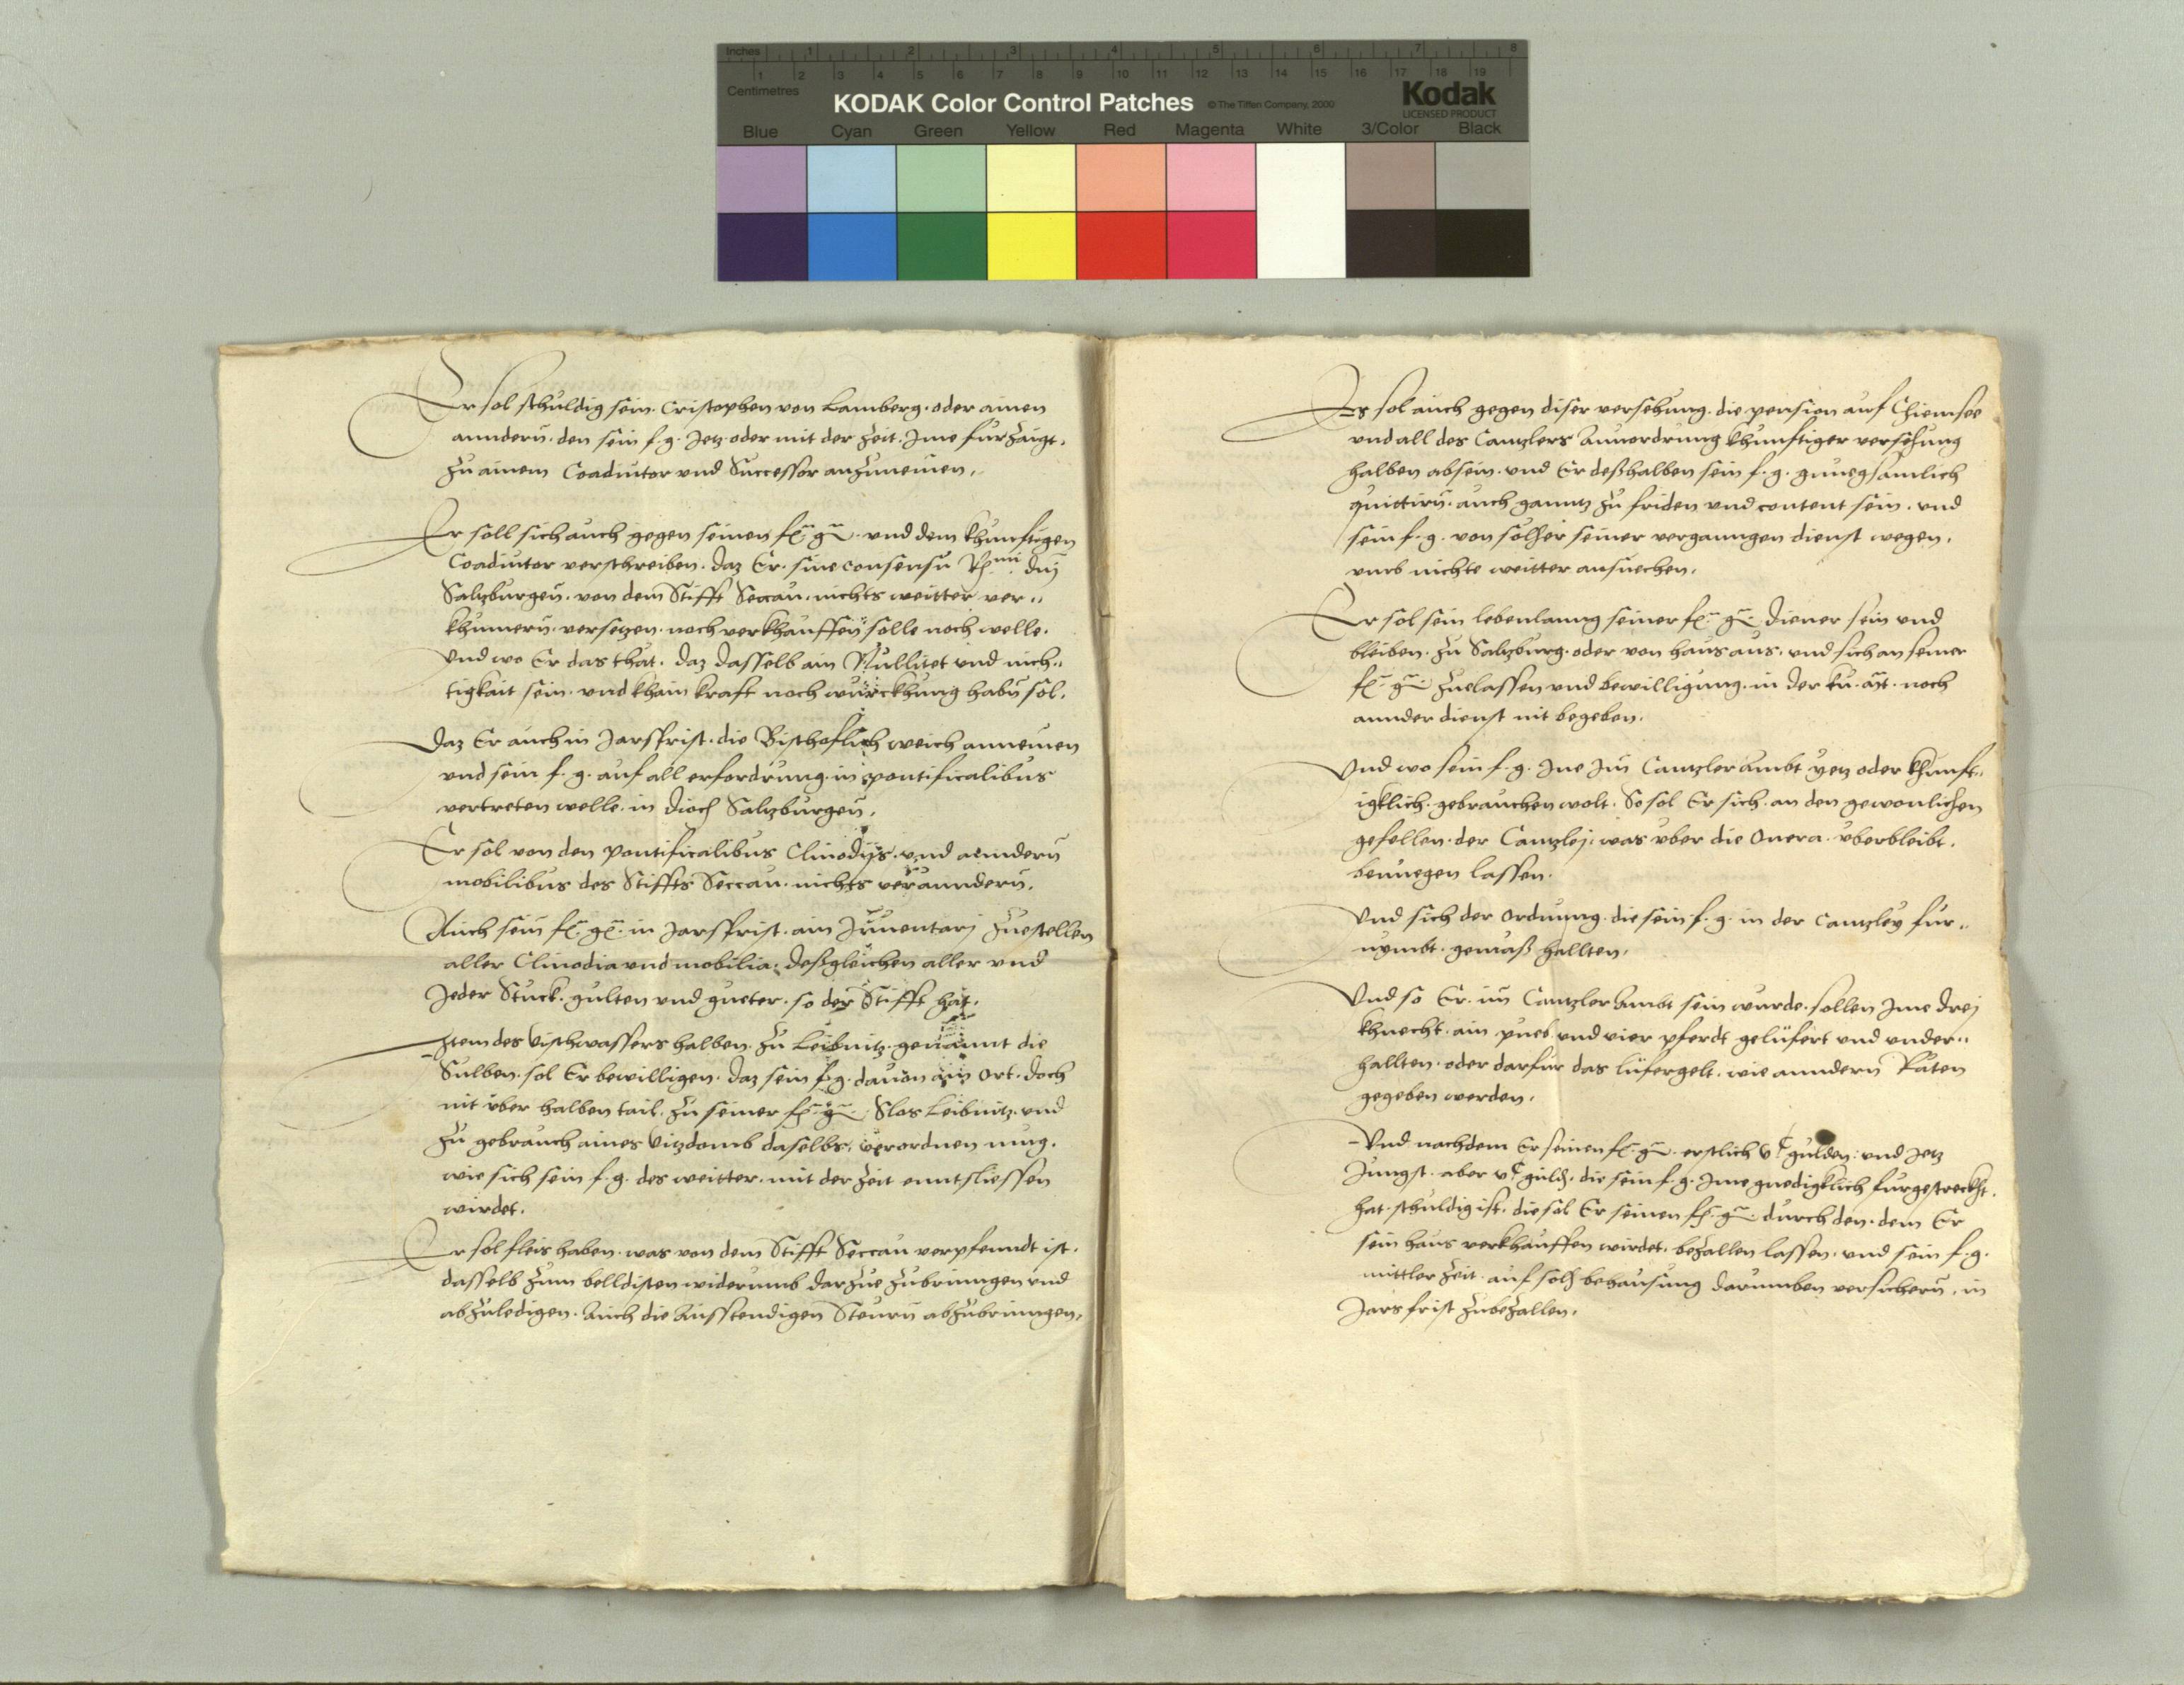 Inches 1 2 3 4 5 6 7 8
1 2 3 4 5 6 7 8 9 10 11 12 13 14 15 16 17 18 19
Centimetres
KODAK Color Control Patches © The Tiffen Company, 2000 Kodak
LICENSED PRODUCT
Blue Cyan Green Yellow Red Magenta White 3/Color Black
Er sol schuldig sein. Cristophen von Lamberg. oder ainen
anndern. den sein f. g. Jetz oder mit der Zeit. Jme furZaigt.
Zu ainem Coadiutor vnd Successor anZunemen.
Er soll sich auch gegen seinen fr. gn. vnd dem khunftigen
Coadiutor verschreiben. daz Er. sine consensu Rmi dni
Saltzburgen. von dem Stifft Seccau. nichts weitter ver..
khumern. versetzen. noch verkhauffen solle noch welle.
Vnd wo Er das that. daz dasselb ain Nullitet vnd nich..
tigkait sein. vnd khain kraft noch wurckhung habn sol.
Daz Er auch in Jarsfrist. die Bischoflich weich annemen
vnd sein f. g. auf all erfordrung. in pontificalibus
vertreten welle. in dioc Saltzburgen.
Er sol von den pontificalibus Clinodijs. vnd anndern
mobilibus des Stiffts Seccau. nichts veranndern.
Auch sein fr. gn. in Jarsfrist. ain Jnuentarj Zuestellen
aller Clinodia vnd mobilia. desgleichen aller vnd
Jeder Stuck. gulten vnd gueter. so der Stifft hat.
Jtem des Vischwassers halben. Zu Leibnitz. genannt die
Sulben. sol Er bewilligen. daz sein f. g. dauon ain Ort. doch
nit vber halben tail. Zu seiner fr. gn. Slos Leibnitz. vnd
Zu gebrauch aines Vitzdomb daselbs. verordnen mug.
wie sich sein f. g. des weitter. mit der Zeit enntsliessen
wirdet.
Er sol fleis haben. was von dem Stifft Seccau verpfenndt ist.
dasselb Zum belldisten widerumb darZue Zubringen vnd
abZuledigen. Auch die Ausstendigen Steurn abZubringen.
Es sol auch gegen diser versehung. die pension auf Chiemsee
vnd all des Cantzlers Anuordrung khunftiger versehung
halben absein. vnd Er deßhalben sein f. g. gnuegsamlich
quittirn. auch ganntz Zu friden vnd content sein. vnd
sein f. g. von solher seiner vergangen dienst wegen.
vmb nichte weitter ansuechen.
Er sol sein lebenlanng seiner fr. gn. diener sein vnd
bleiben. Zu Saltzburg. oder von haus aus. vnd sich an seiner
fr. gn. Zuelassen vnd bewilligung. in der ku. mt. noch
annder dienst nit begeben.
Vnd wo sein f. g. Jne Jm Cantzler Ambt yetz oder khunft..
igklich. gebrauchen wolt. So sol Er sich. an den gewonlichen
gefellen. der Cantzlej. was vber die Onera. vberbleibt.
benuegen lassen.
Vnd sich der Ordnung. die sein f. g. in der Cantzley fur..
nymbt. gemaß hallten.
Vnd so Er. im Cantzler Ambt sein wurde. sollen Jme drej
khnecht. ain pueb. vnd vier pferdt gelüfert vnd vnder..
hallten. oder darfur das lüfergelt. wie anndern Räten
gegeben werden.
Vnd nachdem Er seinen fr. gn. erstlich vc gulden. vnd Jetz
Jungst. aber vc guld. die sein f. g. Jme gnedigklich furgestreckht.
hat. schuldig ist. die sol Er seinen fr. gn. durch den. dem Er
sein haus verkhauffen wirdet. beZallen lassen. vnd sein f. g.
mittler Zeit. auf solh behausung darumben versichern. in
Jars frist ZubeZallen.